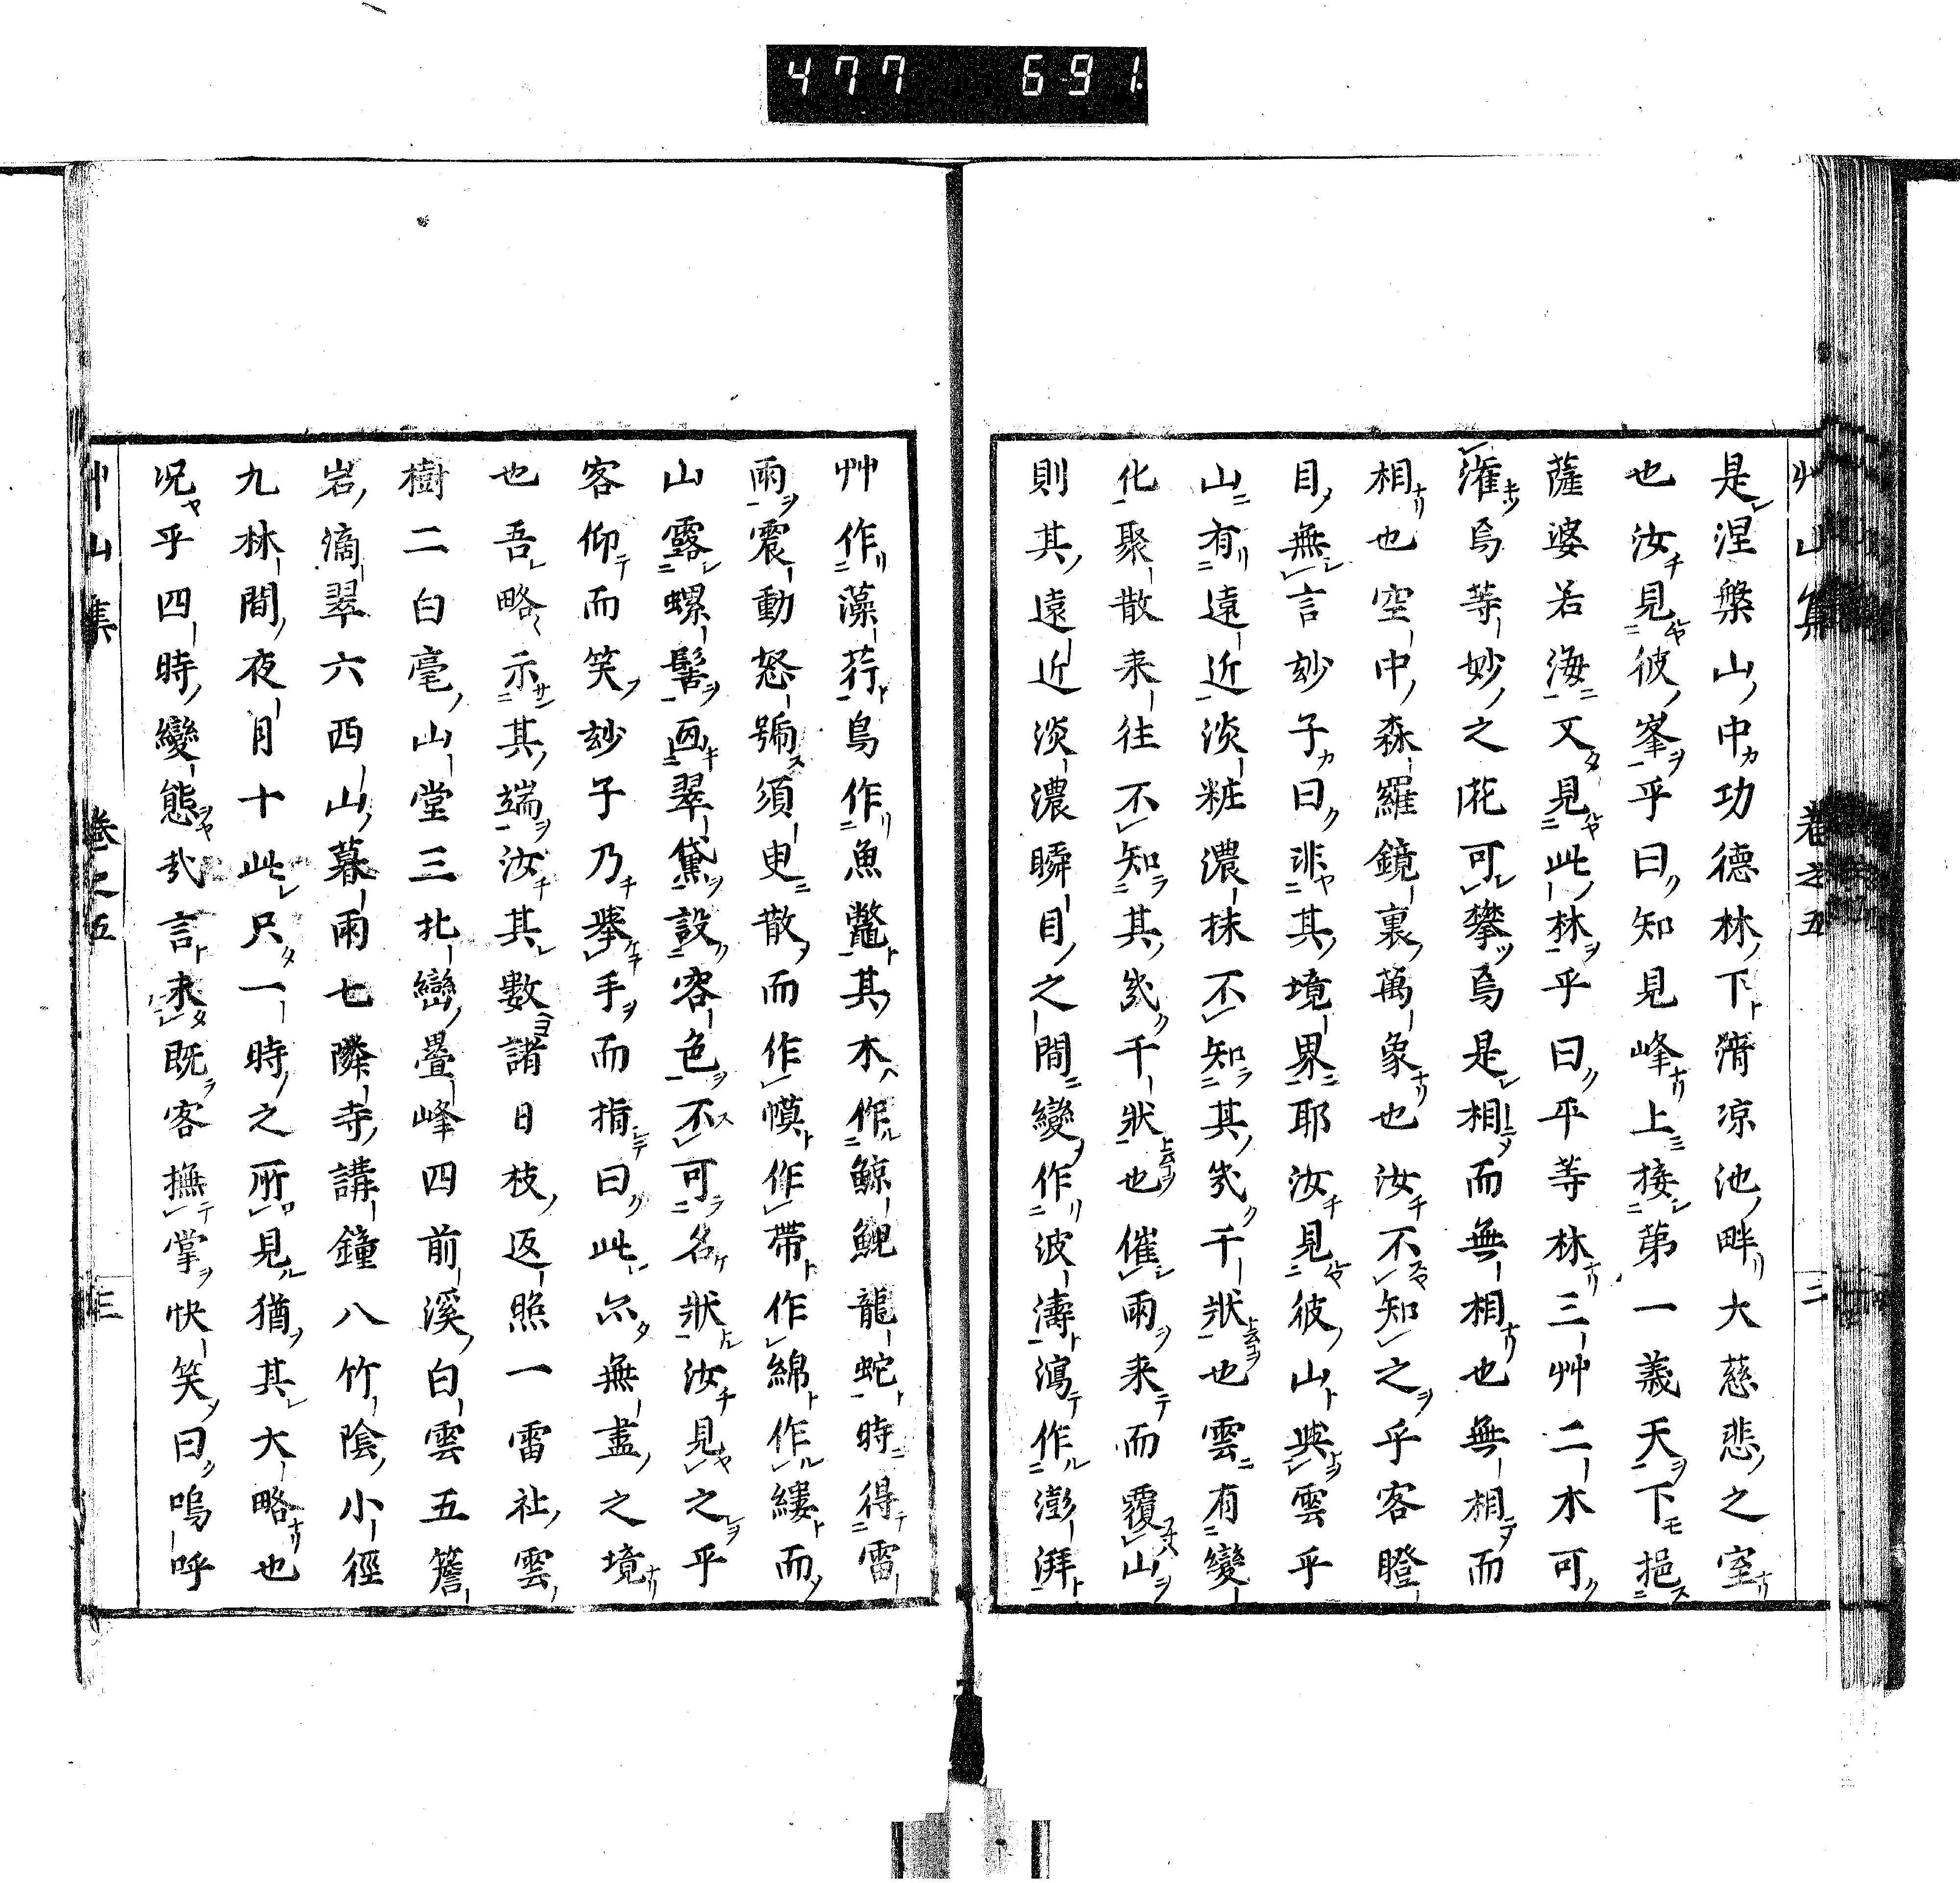 477 691
艸山集 卷之五 二
是涅槃山中功德林下淸凉池畔大慈悲之室
也汝見彼峯乎曰知見峰上接第一義天下挹
薩婆若海又見此林乎曰平等林三艸二木可
潅焉等妙之花可攀焉是相而無相也無相而
相也空中森羅鏡裏萬象也汝不知之乎客瞪
目無言玅子曰非其境界耶汝見彼山與雲乎
山有遠近淡粧濃抹不知其幾千狀也雲有變
化聚散来往不知其幾千狀也催雨来而覆山
則其遠近淡濃瞬目之間變作波濤瀉作澎湃
艸作藻荇鳥作魚鼈其木作鯨鯢龍蛇時得雷
雨震動怒號須臾散而作幙作帶作綿作縷而
山露螺髻画翠黛設容色不可名狀汝見之乎
客仰而笑玅子乃擧手而指曰此尒無盡之境
也吾略示其端汝其數諸日枝返照一雷社雲
樹二白毫山堂三北巒疊峰四前溪白雲五簷
岩滴翠六西山暮雨七隣寺講鐘八竹陰小徑
九林間夜月十此只一時之所見猶其大略也
况乎四時變態㢤言未既客撫掌快笑曰嗚呼
艸山集 卷之五 三